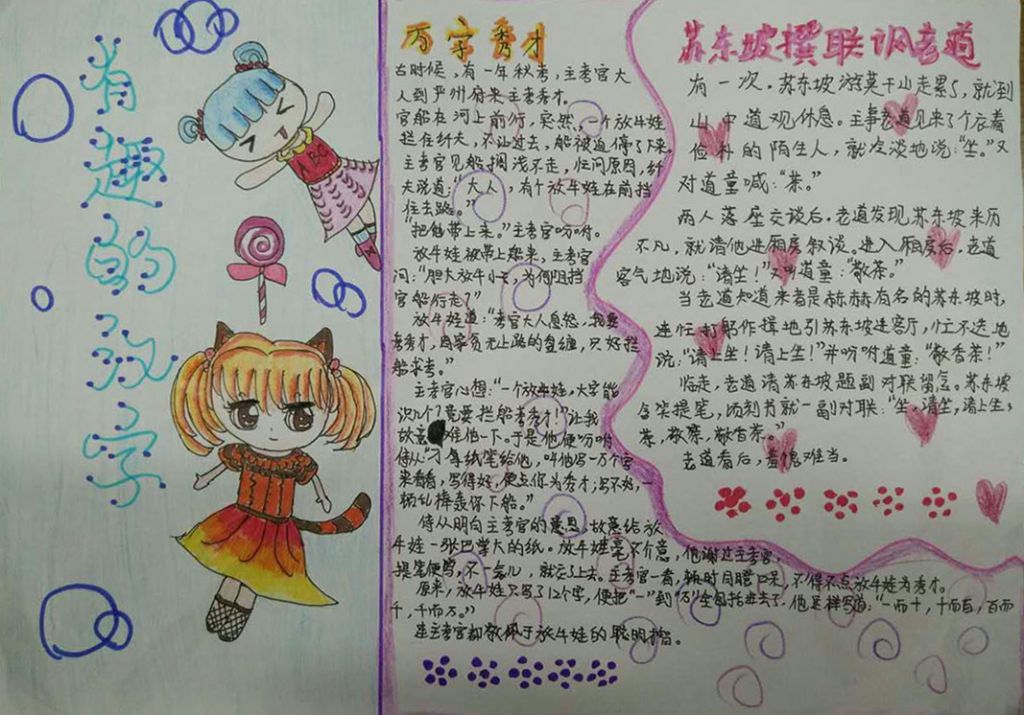 有趣的汉字
万字秀才
古时候,有一年秋考,主考官大
人到严州府来主考秀才。
官船在河上前行,突然,一个放牛娃
拦住纤夫,不让过去,船被迫停了下来。
主考官见船搁浅不走,忙问原因,纤
夫说道:“大人,有个放牛娃在前挡
住去路。”
“把他带上来。”主考官吩咐。
放牛娃被带上船来,主考官
问:“胆大放牛小子,为何阻挡
官船行走?”
放牛娃道:“考官大人息怒,我要
考秀才,因家贫无上路的盘缠,只好拦
船求考。”
主考官心想:“一个放牛娃,大字能
识几个?竟要拦船考秀才!”让我
故意难他一下。于是他便吩咐
侍从:“拿纸笔给他,叫他写一万个字
来看看,写得好,便点你为秀才;写不好,一
顿乱棒轰你下船。”
侍从明白主考官的意思,故意给放
牛娃一张巴掌大的纸。放牛娃毫不介意,他谢过主考官,
提笔便写,不一会儿,就交了上去。主考官一看,顿时目瞪口呆,不得不点放牛娃为秀才。
原来,放牛娃只写了12个字,便把“一”到“万”全包括进去了,他是样写道:“一而十,十而百,百而
千,千而万。”
连主考官都敬佩于放牛娃的聪明才智。
苏东坡撰联讽老道
有一次,苏东坡游莫干山走累了,就到
山中道观休息。主事老道见来了个衣着
俭朴的陌生人,就冷淡地说:“坐。”又
对道童喊:“茶。”
两人落座交谈后,老道发现苏东坡来历
不凡,就请他进厢房叙谈。进入厢房后,老道
客气地说:“请坐!”又叫道童:“敬茶。”
当老道知道来者是赫赫有名的苏东坡时,
连忙打躬作揖地引苏东坡进客厅,忙不迭地
说:“请上坐!请上坐!”并吩咐道童:“敬香茶!”
临走,老道请苏东坡题副对联留念。苏东坡
含笑提笔,顷刻书就一副对联:“坐,请坐,请上坐;
茶,敬茶,敬香茶。”
老道看后,羞愧难当。